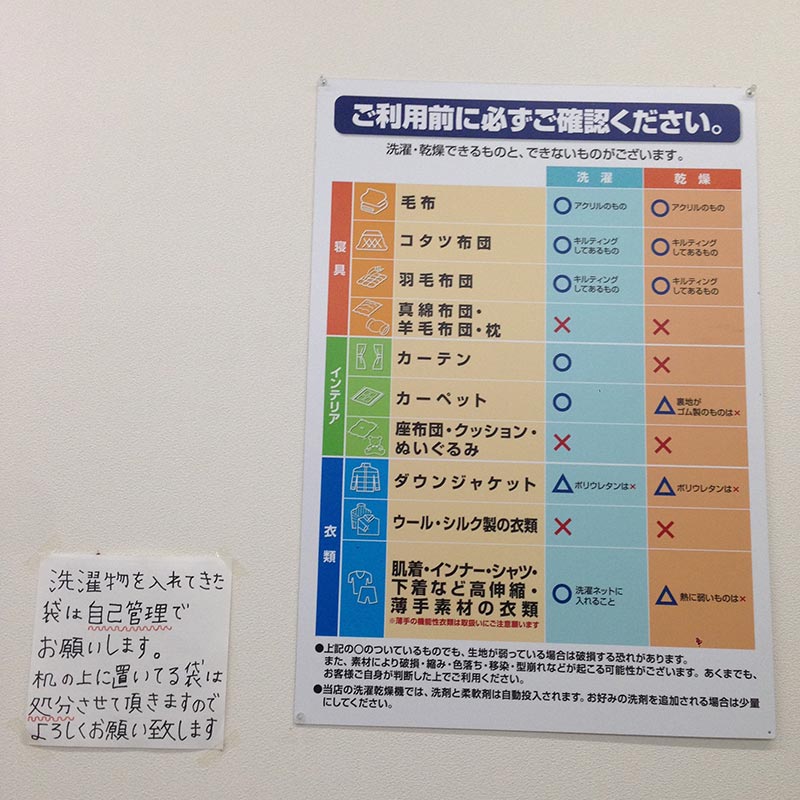 ご利用前に必ずご確認ください。
洗濯・乾燥できるものと、できないものがございます。
洗濯
乾燥
寝具
毛布
○アクリルのもの
○アクリルのもの
コタツ布団
○キルティング
してあるもの
○キルティング
してあるもの
羽毛布団
○キルティング
してあるもの
○キルティング
してあるもの
真綿布団・
羊毛布団・枕
×
×
インテリア
カーテン
○
×
カーペット
○
△裏地が
ゴム製のものは×
座布団・クッション・
ぬいぐるみ
×
×
衣類
ダウンジャケット
△ポリウレタンは×
△ポリウレタンは×
ウール・シルク製の衣類
×
×
肌着・インナー・シャツ・
下着など高伸縮・
薄手素材の衣類
※薄手の機能性衣類は取扱いにご注意願います
○洗濯ネットに
入れること
△熱に弱いものは×
●上記の○のついているものでも、生地が弱っている場合は破損する恐れがあります。
また、素材により破損・縮み・色落ち・移染・型崩れなどが起こる可能性がございます。あくまでも、
お客様ご自身が判断した上でご利用ください。
●当店の洗濯乾燥機では、洗剤と柔軟剤は自動投入されます。お好みの洗剤を追加される場合は少量
にしてください。
洗濯物を入れてきた
袋は自己管理で
お願いします。
机の上に置いてる袋は
処分させて頂きますので
よろしくお願い致します